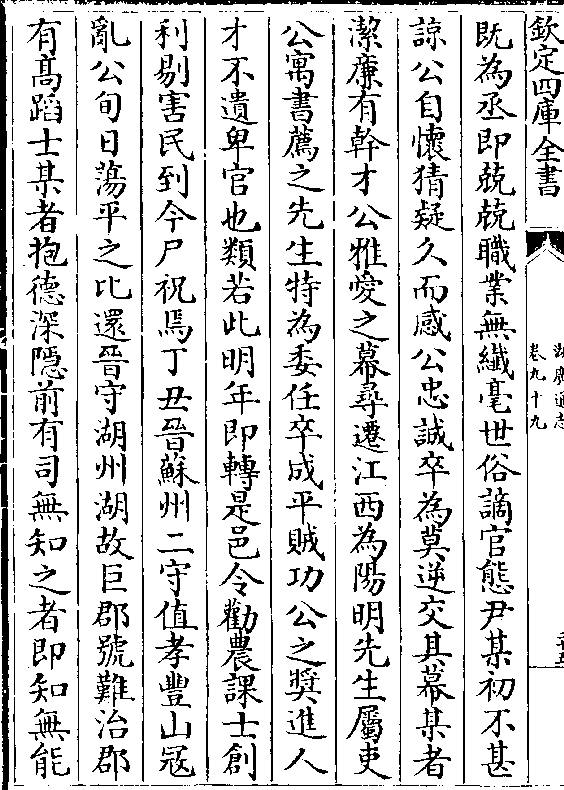 欽定四庫全書
湖廣通志
卷九十九
既為丞即兢兢職業無纎毫世俗謫官態尹某初不甚
諒公自懷猜疑久而感公忠誠卒為莫逆交其幕某者
潔廉有幹才公雅愛之幕尋遷江西為陽明先生屬吏
公寓書薦之先生特為委任卒成平賊功公之奬進人
才不遺卑官也類若此明年即轉是邑令勸農課士創
利剔害民到今尸祝焉丁丑晉蘇州二守值孝豐山冦
亂公旬日蕩平之比還晉守湖州湖故巨郡號難治郡
有髙蹈士某者抱德深隱前有司無知之者即知無能